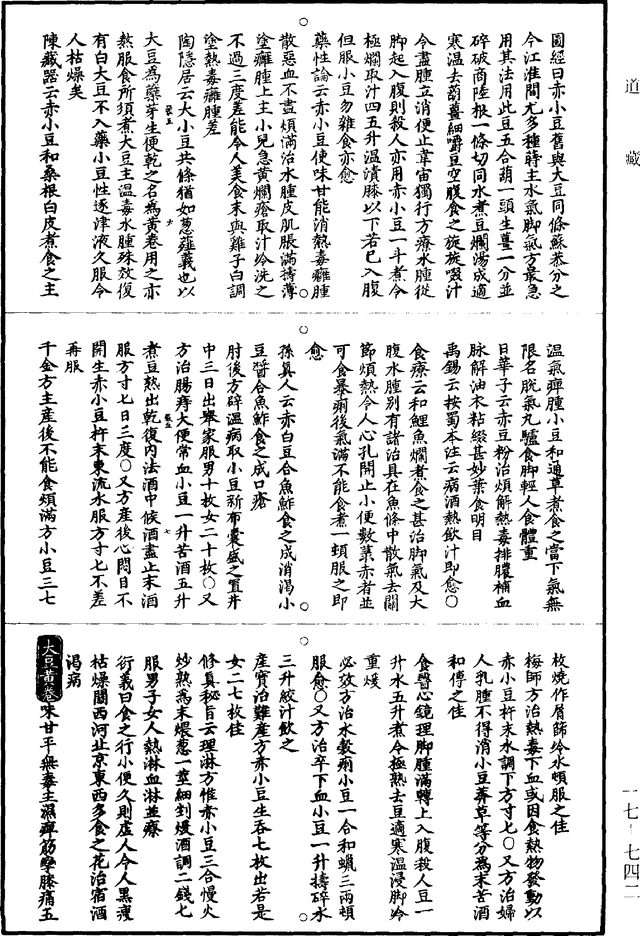 道藏
圖經曰赤小豆舊與大豆同條蘇恭分之
今江淮間尤多種蒔主水氣腳氣方最急
用其法用此豆五合葫一頭生薑一分並
碎破商陸根一條切同水煮豆爛湯成適
寒溫去葫薑細嚼豆空腹食之旋旋啜汁
令盡腫立消便止韋宙獨行方療水腫從
腳起入腹則殺人亦用赤小豆一斗煮令
極爛取汁四五升溫漬膝以下若已入腹
但服小豆勿雜食亦愈
藥性論云赤小豆使味甘能消熱毒癰腫
散惡血不盡煩滿治水腫皮肌脹滿擣薄
塗癰腫上主小兒急黃爛瘡取汁令洗之
不過三度差能令人美食末與雞子白調
塗熱毒癰腫差
陶隱居云大小豆共條猶如葱薤義也以
大豆為蘗芽生便乾之名為黃卷用之亦
熬服食所須煮大豆主溫毒水腫殊效復
有白大豆不入藥小豆性逐津液久服令
人枯燥矣
陳藏器云赤小豆和桑根白皮煮食之主
溫氣痺腫小豆和通草煮食之當下氣無
限名脫氣丸驢食腳輕人食體重
日華子云赤豆粉治煩解熱毒排膿補血
脉解油衣粘綴甚妙葉食明目
禹錫云按蜀本注云病酒熱飲汁即愈〇
食療云和鯉魚爛煮食之甚治腳氣及大
腹水腫別有諸治具在魚條中散氣去關
節煩熱令人心孔開止小便數菉赤者並
可食暴痢後氣滿不能食煮一頓服之即
愈
孫真人云赤白豆合魚鮓食之成消渴小
豆醬合魚鮓食之成口瘡
肘後方辟溫病取小豆新布囊盛之置井
中三日出舉家服男十枚女二十枚〇又
方治腸痔大便常血小豆一升苦酒五升
煮豆熟出乾復內法酒中候酒盡止末酒
服方寸七日三度〇又方產後心悶目不
開生赤小豆杵末東流水服方寸七不差
再服
千金方主產後不能食煩滿方小豆三七
枚燒作屑篩冷水頓服之佳
梅師方治熱毒下血或因食熱物發動以
赤小豆杵末水調下方寸七〇又方治婦
人乳腫不得消小豆莽草等分為末苦酒
和傅之佳
食醫心鏡理腳腫滿轉上入腹殺人豆一
升水五升煮令極熟去豆適寒溫浸腳冷
重煖
必效方治水穀痢小豆一合和蠟三兩頓
服愈〇又方治卒下血小豆一升擣碎水
三升絞汁飲之
產寶治難產方赤小豆生吞七枚出若是
女二七枚佳
修真秘旨云理淋方惟赤小豆三合慢火
炒熟為末煨葱一莖細剉煖酒調二錢七
服男子女人熱淋血淋並療
衍義曰食之行小便久則虛人令人黑瘦
枯燥關西河北京東西多食之花治宿酒
渴病
大豆黃卷味甘平無毒主濕痺筋攣膝痛五
一七―七四二